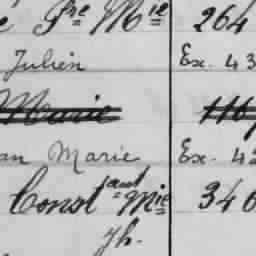 Pre Mie 264
Julien Ex. 43
Marie 116
an Marie Ex. 42
Const ant Mie 346
yh.